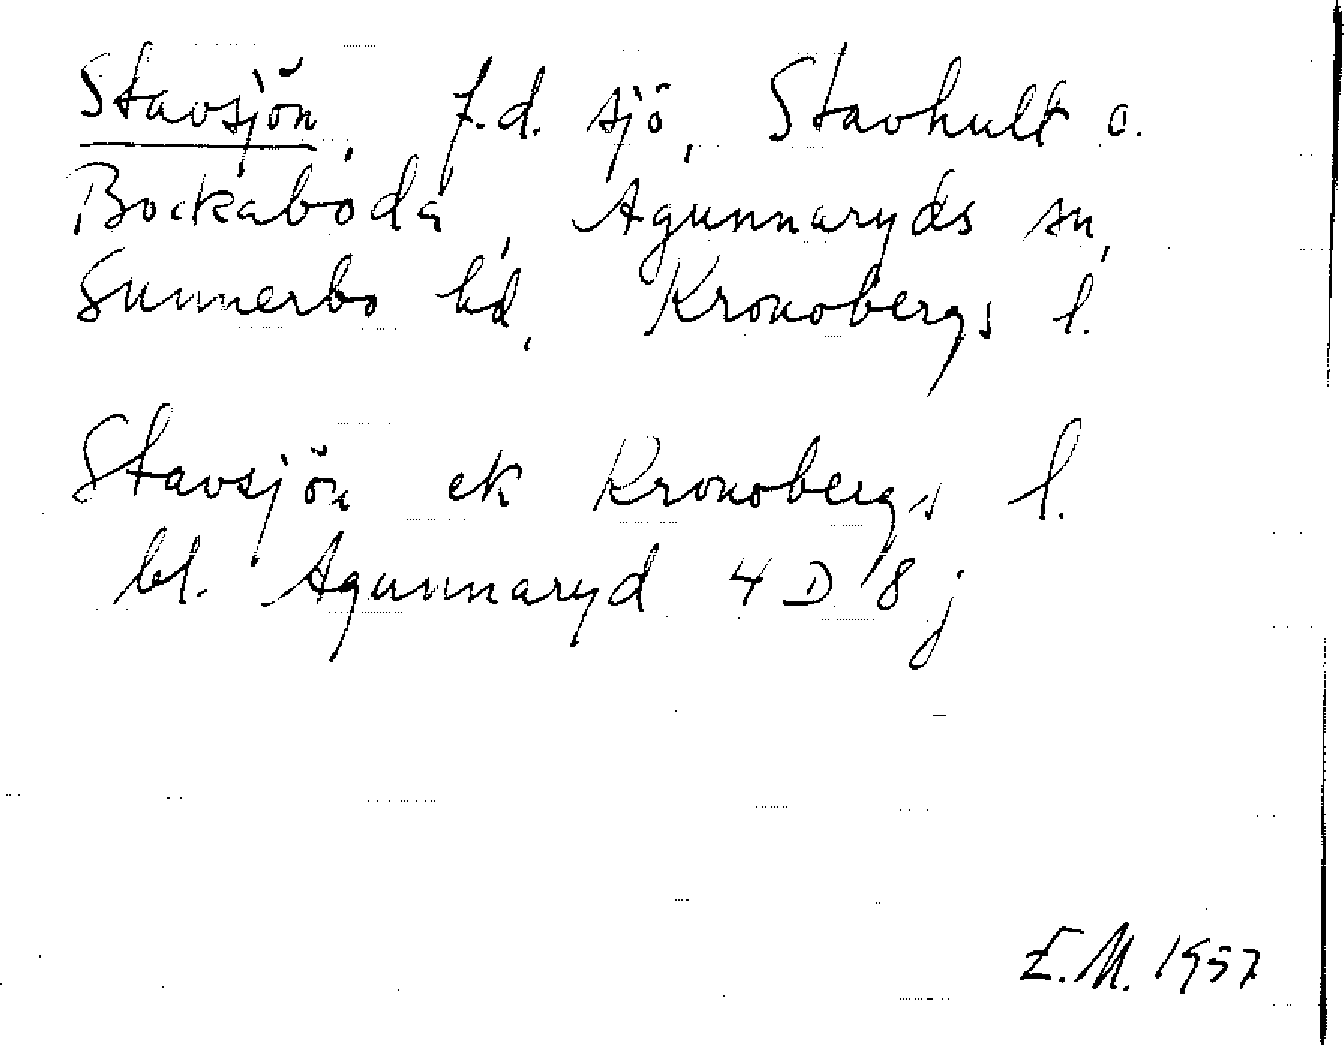 Stavsjön, f.d. sjö, Stavhult o.
Bockaboda, Agunnaryds sn,
Sunnerbo hd, Kronobergs l.
Stavsjön ek Kronobergs l.
bl. Agunnaryd 4 D 8 j
E.M. 1957